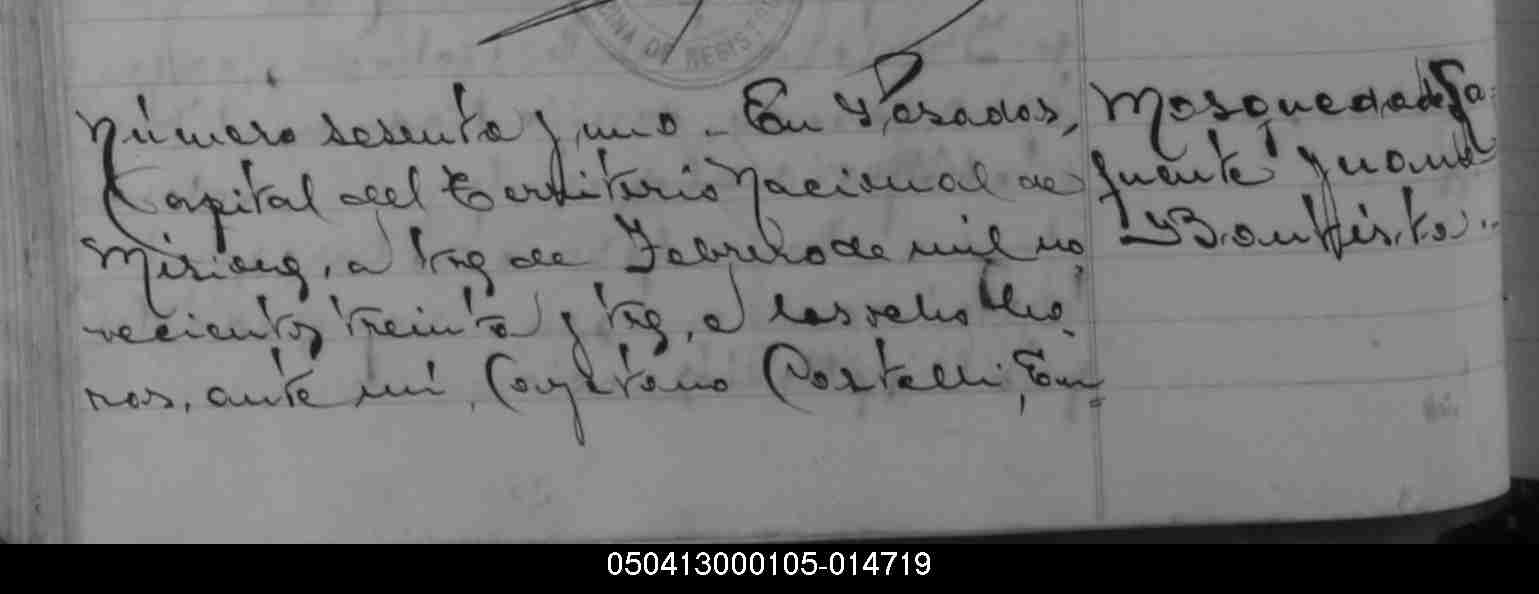 OFICINA DE REGISTRO
Número sesenta y uno - En Posadas,
Capital del Territorio Nacional de
Misiones, a tres de Febrero de mil no
vecientos treinta y tres, a las ocho ho
ras, ante mi, Cayetano Castelli, En=
Mosqueda de La=
fuente Juana
Bautista.
050413000105-014719